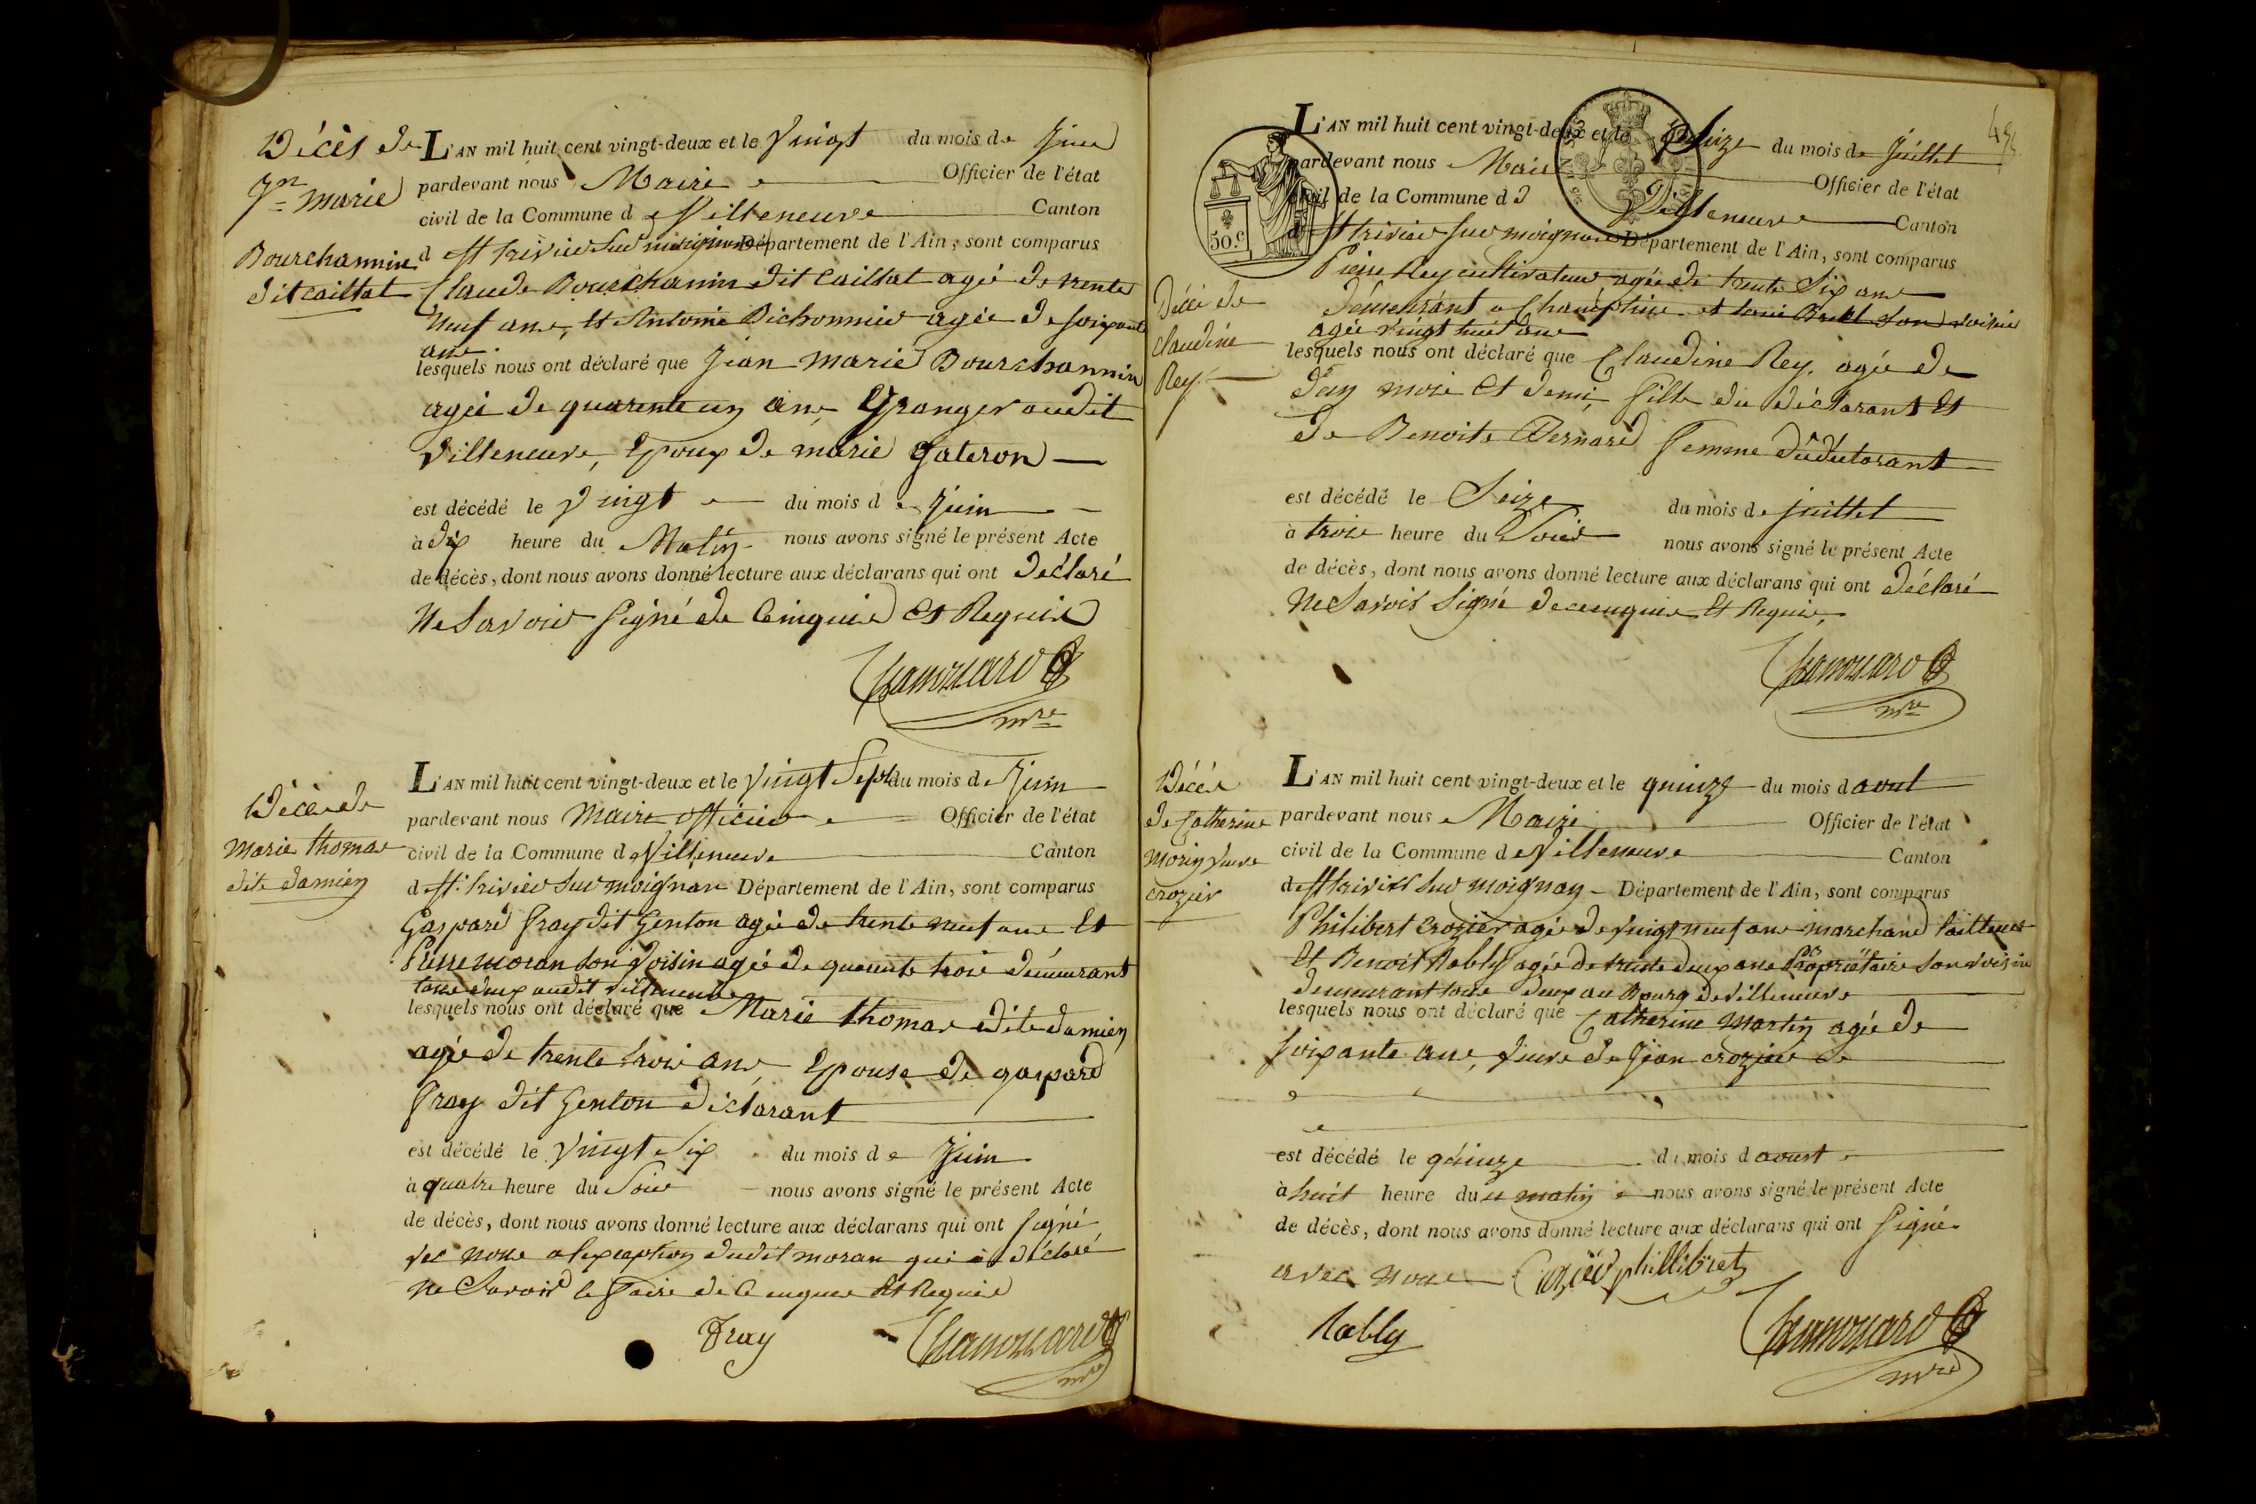 Décès de
Jn marie
Bourchannin
dit caillat
L'AN mil huit cent vingt-deux et le vingt du mois de Juin
pardevant nous Maire Officier de l'état
civil de la Commune de Villeneuve Canton
d St trivier Sur moignans Département de l'Ain, sont comparus
Claude Bourchanin dit Caillat agé de trente
neuf ans, et Antoine Bichonnier agée de soixante
ans
lesquels nous ont déclaré que Jean marie Bourchannin
agée de quarente un ans Granger audit
Villeneuve, Epoux de marie Gateron
est décédé le vingt du mois de Juin
à dix heure du Matin nous avons signé le présent Acte
de décès, dont nous avons donné lecture aux déclarans qui ont déclaré
ne Savoir Signé de Ceinquis et Requis
Chanouard
mre
Décès de
Marie thomas
dite damien
L'AN mil huit cent vingt-deux et le vingt Sept du mois de Juin
pardevant nous Maire officier Officier de l'état
civil de la Commune de Villeneuve Canton
d St. trivier Sur moignan Département de l'Ain, sont comparus
Gaspard fray dit Genton agée de trente neuf ans et
Pierre moran son Voisin agée de quarente trois demeurant
tous deux audit villeneuve
lesquels nous ont déclaré que Marie thomas dite damien
agée de trente trois ans, Epouse de gaspard
fray dit Genton déclarant
est décédé le vingt Six du mois de Juin
à quatre heure du Soir nous avons signé le présent Acte
de décès, dont nous avons donné lecture aux déclarans qui ont Signé
vec nous a lexception dudit moran qui a déclaré
ne Savoir le faire de Ce enquis et Requis
Fray
Chanouard
mre
50.c
Décé de
Claudine
Rey
L'AN mil huit cent vingt-deux et le Seize du mois de Juillet
pardevant nous Maire Officier de l'état
civil de la Commune d D Villeneuve Canton
d St trivier Sur moignans Département de l'Ain, sont comparus
Pierre Rey cultivateur agée de trente Six ans
demeurant a Chaneptine et son voisin
agée vingt huit ans
lesquels nous ont déclaré que Claudine Rey. agée de
d'un mois et demi, fille du déclarant et
de Benoite Bernard femme du déclarant
est décédé le Seize du mois de juillet
à trois heure du Soir nous avons signé le présent Acte
de décès, dont nous avons donné lecture aux déclarans qui ont déclaré
ne Savoir Signé de ce enquis et Requis,
Chanouard
mre
Décès
de Catherine
morin veuve
crozier
L'AN mil huit cent vingt-deux et le quinze du mois d aout
pardevant nous Maire Officier de l'état
civil de la Commune de Villeneuve Canton
d St trivier Sur moignan Département de l'Ain, sont comparus
Philibert crozier agée de vingt neuf ans marchand tailleur
Et Benoit Nably agée de trente deux ans propriétaire Son voisin
demeurant tous deux au Bourg de villeneuve
lesquels nous ont déclaré que Catherine Martin agée de
soixante ans, veuve de Jean crozier
est décédé le quinze du mois d aoust
à huit heure du matin nous avons signé le présent Acte
de décès, dont nous avons donné lecture aux déclarans qui ont Signé
avec nous Crozier phillibret
Nably
Chanouard
mre